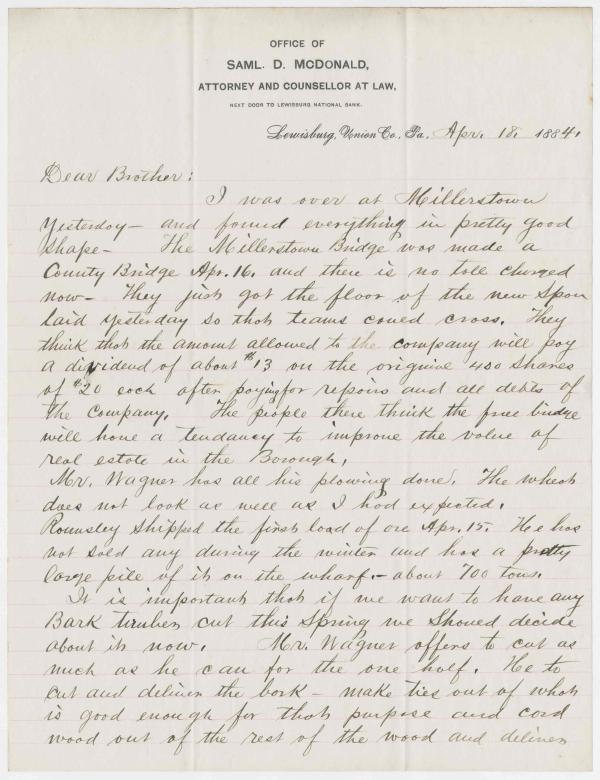 OFFICE OF
SAML. D. McDONALD,
ATTORNEY AND COUNSELLOR AT LAW,
NEXT DOOR TO LEWISBURG NATIONAL BANK.
Lewisburg, Union Co., Pa. Apr. 18. 1884.
Dear Brother:
I was over at Millerstown
Yesterday - and found everything in pretty good
shape - The Millerstown Bridge was made a
County Bridge Apr. 16. and there is no toll charged
now - They just got the floor of the new Span
laid yesterday so that teams could cross. They
think that the amount allowed to the company will pay
a dividend of about $13 on the original 400 shares
of $20 each after paying for repairs and all debts of
the Company. The people there think the free bridge
will have a tendancy to improve the value of
real estate in the Borough.
Mr. Wagner has all his plowing done. The wheat
does not look as well as I had expected.
Rounsley shipped the first load of ore Apr. 15. He has
not sold any during the winter and has a pretty
large pile of it on the wharf. - about 700 tons.
It is important that if we want to have any
Bark timber cut this Spring we should decide
about it now. Mr. Wagner offers to cut as
much as he can for the one half. He to
cut and deliver the bark - make ties out of what
is good enough for that purpose and cord
wood out of the rest of the wood and deliver